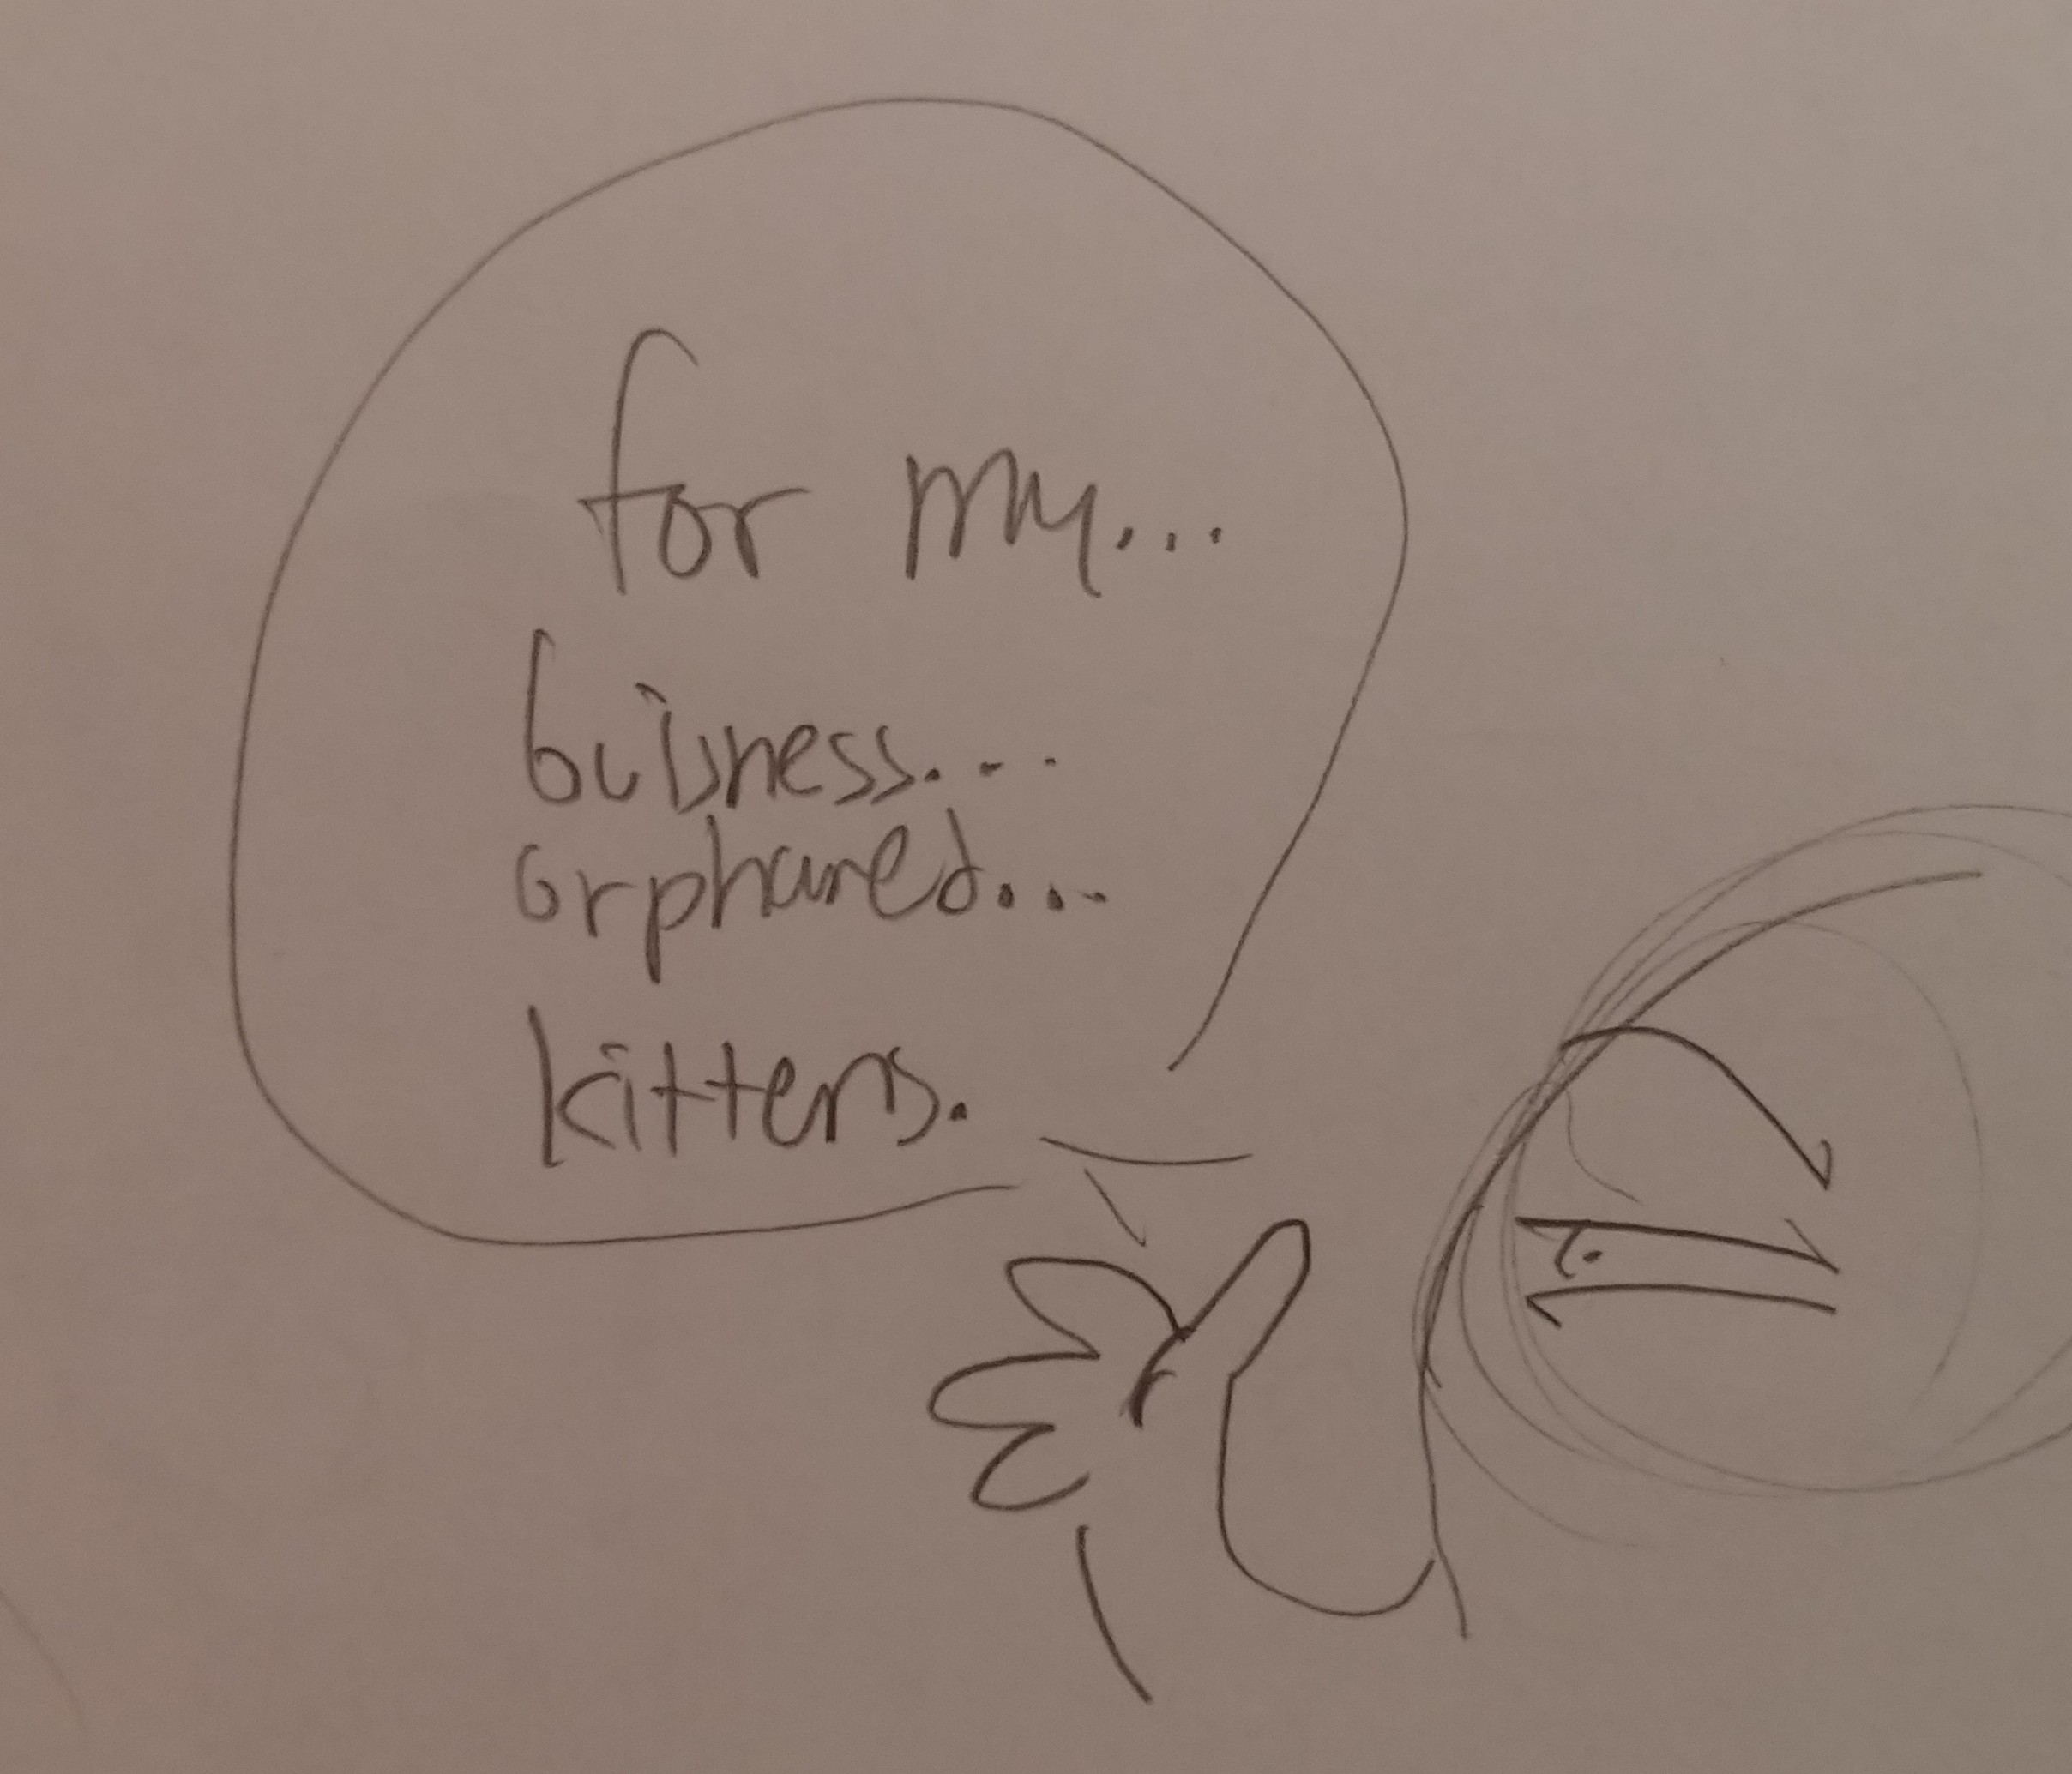 for my...
buisness...
orphaned...
kittens.